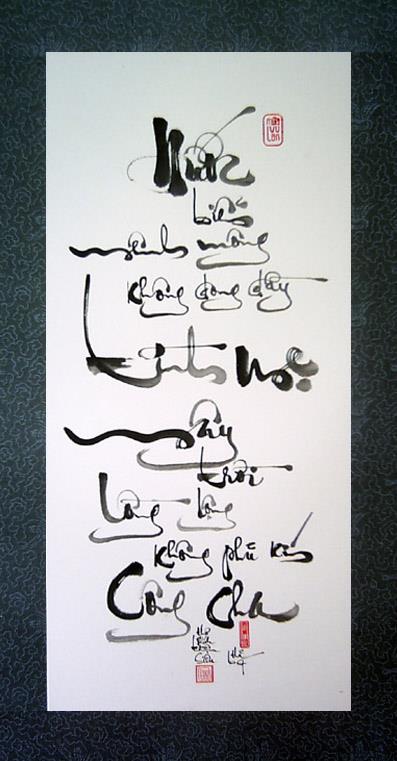 Nước
biển
mênh mông
không đong đầy
tình mẹ
mây
trời
lồng lộng
không phủ kín
Công Cha